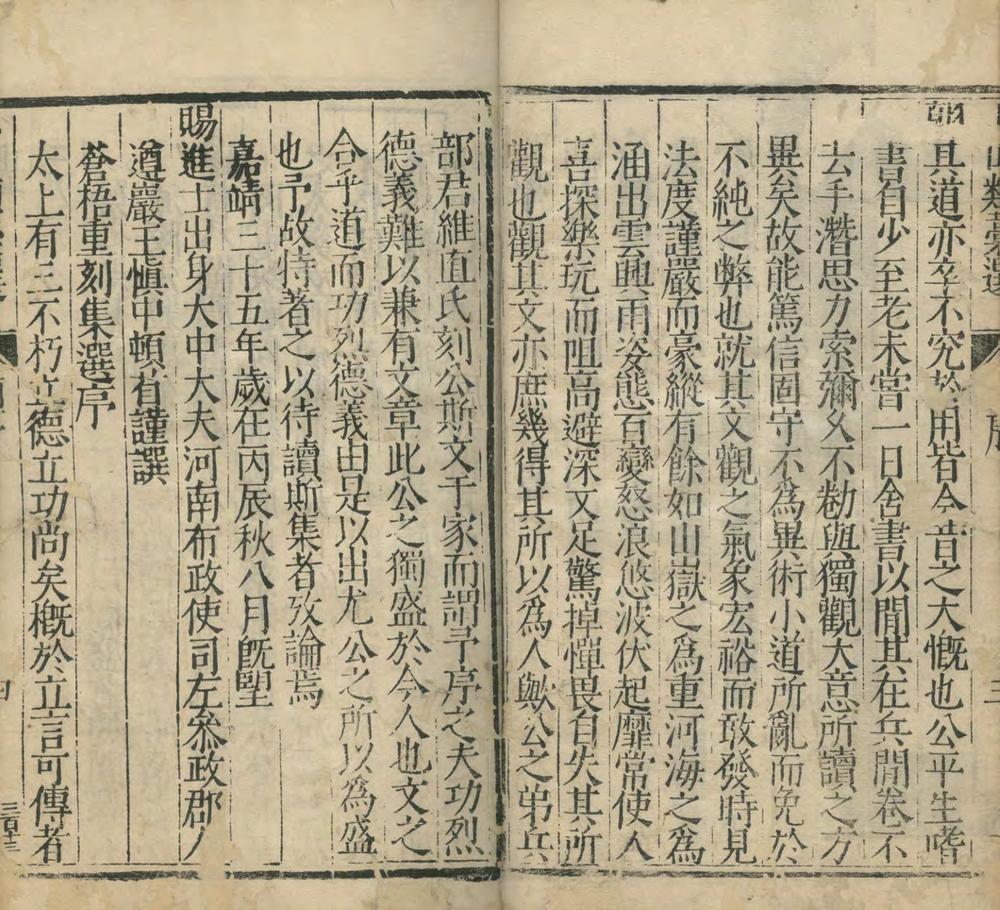 朝
其道亦卒不究於用皆今昔之大慨也公平生嗜
書自少至老未嘗一日舍書以閒其在兵閒卷不
去手潛思力索彌久不勌與獨觀大意所讀之方
異矣故能篤信固守不為異術小道所亂而免於
不純之弊也就其文觀之氣象宏裕而敢發時見
法度謹嚴而豪縱有餘如山嶽之為重河海之為
涵出雲興雨姿態百變怒浪悠波伏起靡常使人
喜探樂玩而阻高避深又足驚掉憚畏自失其所
觀也觀其文亦庶幾得其所以爲人與公之弟兵
部君維直氏刻公斯文于家而謂予序之夫功烈
德義難以兼有文章此公之獨盛於今人也文之
合乎道而功烈德義由是以出尤公之所以為盛
也予故特著之以待讀斯集者攷論焉
嘉靖三十五年歲在丙辰秋八月既朢
賜進士出身大中大夫河南布政使司左叅政郡人
遵巖王慎中頓首謹譔
蒼梧重刻集選序
太上有三不朽立德立功尚矣概於立言可傳者